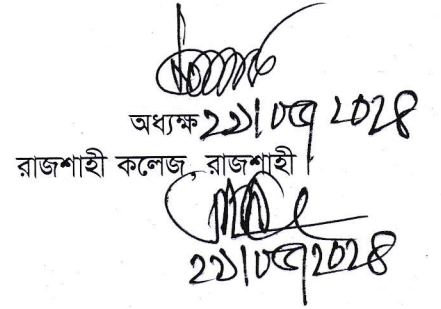 অধ্যক্ষ ২১/০৫/২০২৪
রাজশাহী কলেজ, রাজশাহী।
২১/০৫/২০২৪